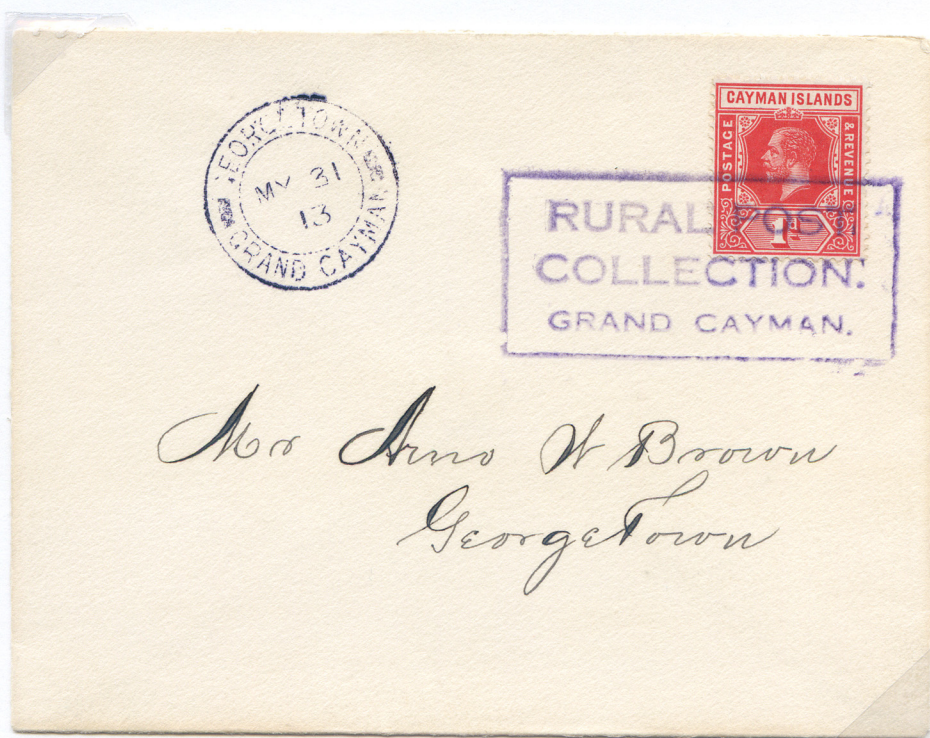 GEORGETOWN
MY 31
13
GRAND CAYMAN
CAYMAN ISLANDS
POSTAGE
& REVENUE
1d
RURAL POST
COLLECTION.
GRAND CAYMAN.
Mr Arno W Brown
GeorgeTown